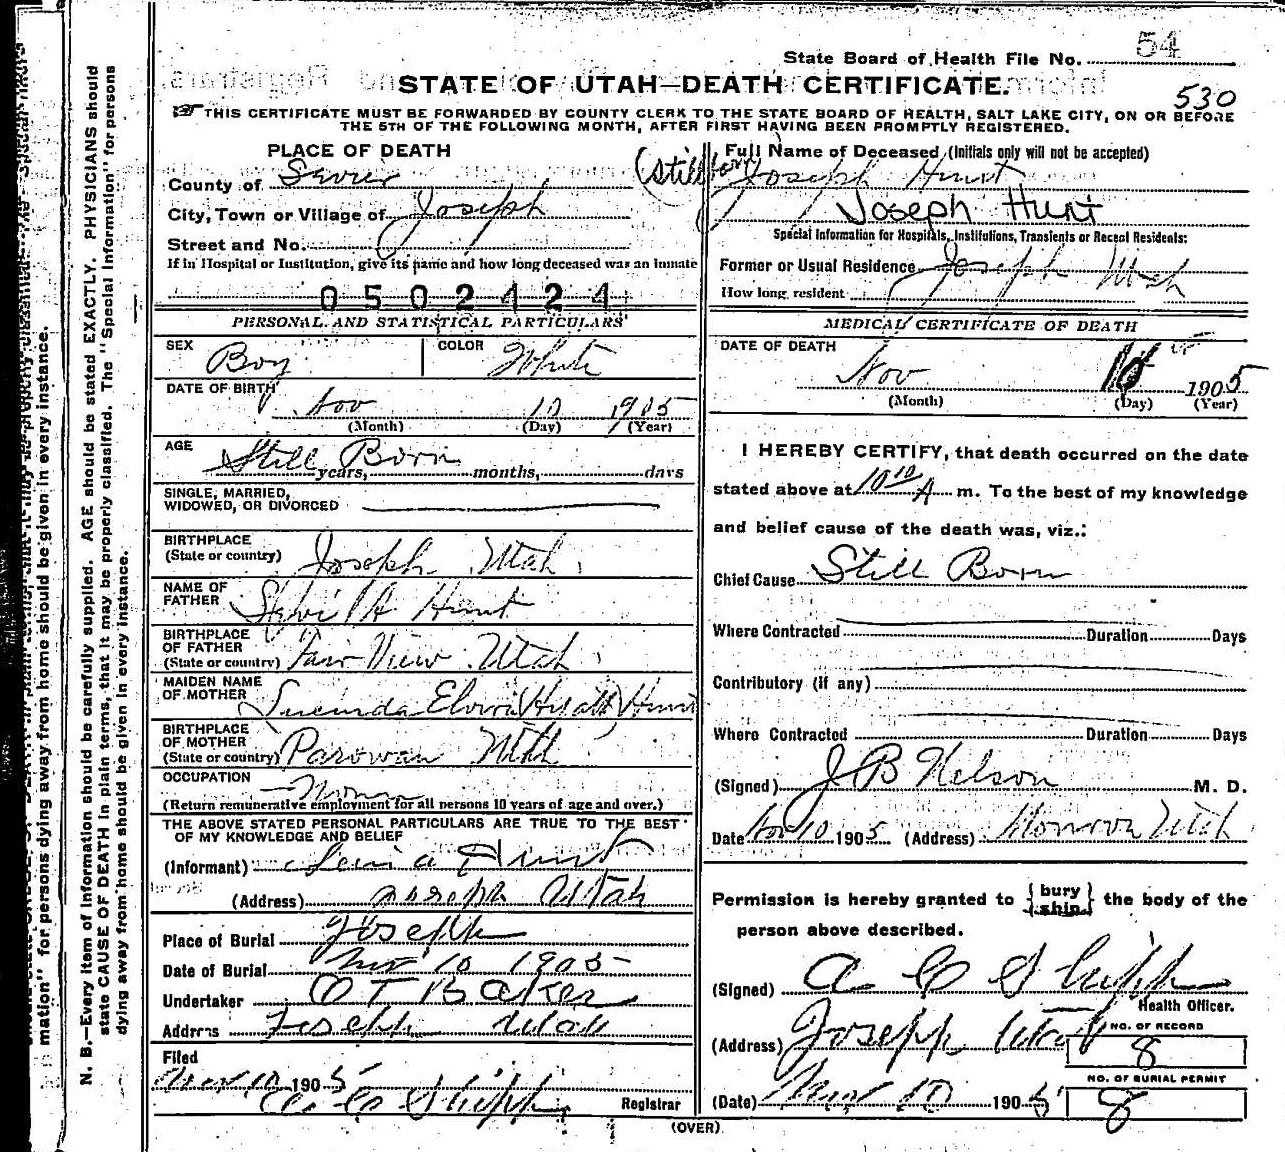 State Board of Health File No. 54
STATE OF UTAH—DEATH CERTIFICATE.
530
THIS CERTIFICATE MUST BE FORWARDED BY COUNTY CLERK TO THE STATE BOARD OF HEALTH, SALT LAKE CITY, ON OR BEFORE
THE 5TH OF THE FOLLOWING MONTH, AFTER FIRST HAVING BEEN PROMPTLY REGISTERED.
PLACE OF DEATH
County of Sevier
City, Town or Village of Joseph
Street and No.
If in Hospital or Institution, give its name and how long deceased was an inmate
0502424
PERSONAL AND STATISTICAL PARTICULARS
SEX Boy COLOR White
DATE OF BIRTH Nov 10 1905
(Month) (Day) (Year)
AGE Still Born
years, months, days
SINGLE, MARRIED,
WIDOWED, OR DIVORCED
BIRTHPLACE
(State or country) Joseph Utah
NAME OF
FATHER A Hunt
BIRTHPLACE
OF FATHER
(State or country) Fair View Utah
MAIDEN NAME
OF MOTHER Hunt
BIRTHPLACE
OF MOTHER
(State or country) Parowan Utah
OCCUPATION
(Return remunerative employment for all persons 10 years of age and over.)
THE ABOVE STATED PERSONAL PARTICULARS ARE TRUE TO THE BEST
OF MY KNOWLEDGE AND BELIEF
(Informant) Hunt
(Address) Joseph Utah
Place of Burial Joseph
Date of Burial Nov 10 1905
Undertaker O T Baker
Address Joseph Utah
Filed
Nov 10 1905
A C Shipp Registrar
(Still born)
Full Name of Deceased (Initials only will not be accepted)
Joseph Hunt
Joseph Hunt
Special Information for Hospitals, Institutions, Transients or Recent Residents:
Former or Usual Residence Joseph Utah
How long resident
MEDICAL CERTIFICATE OF DEATH
DATE OF DEATH
Nov 10 1905
(Month) (Day) (Year)
I HEREBY CERTIFY, that death occurred on the date
stated above at 10 10 A m. To the best of my knowledge
and belief cause of the death was, viz.:
Chief Cause Still Born
Where Contracted Duration Days
Contributory (if any)
Where Contracted Duration Days
(Signed) J B Nelson M. D.
Date Nov 10 1905 (Address) Monroe Utah
Permission is hereby granted to { bury ship } the body of the
person above described.
(Signed) A C Shipp
Health Officer.
(Address) Joseph Utah
NO. OF RECORD
8
NO. OF BURIAL PERMIT
(Date) Nov 10 1905 8
(OVER)
N. B.—Every item of information should be carefully supplied. AGE should be stated EXACTLY. PHYSICIANS should
state CAUSE OF DEATH in plain terms, that it may be properly classified. The "Special Information" for persons
dying away from home should be given in every instance.
mation" for persons dying away from home should be given in every instance.